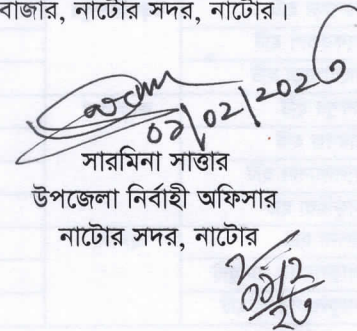 বাজার, নাটোর সদর, নাটোর।
০১/০২/২০২৬
সারমিনা সাত্তার
উপজেলা নির্বাহী অফিসার
নাটোর সদর, নাটোর
০১/২
২৬